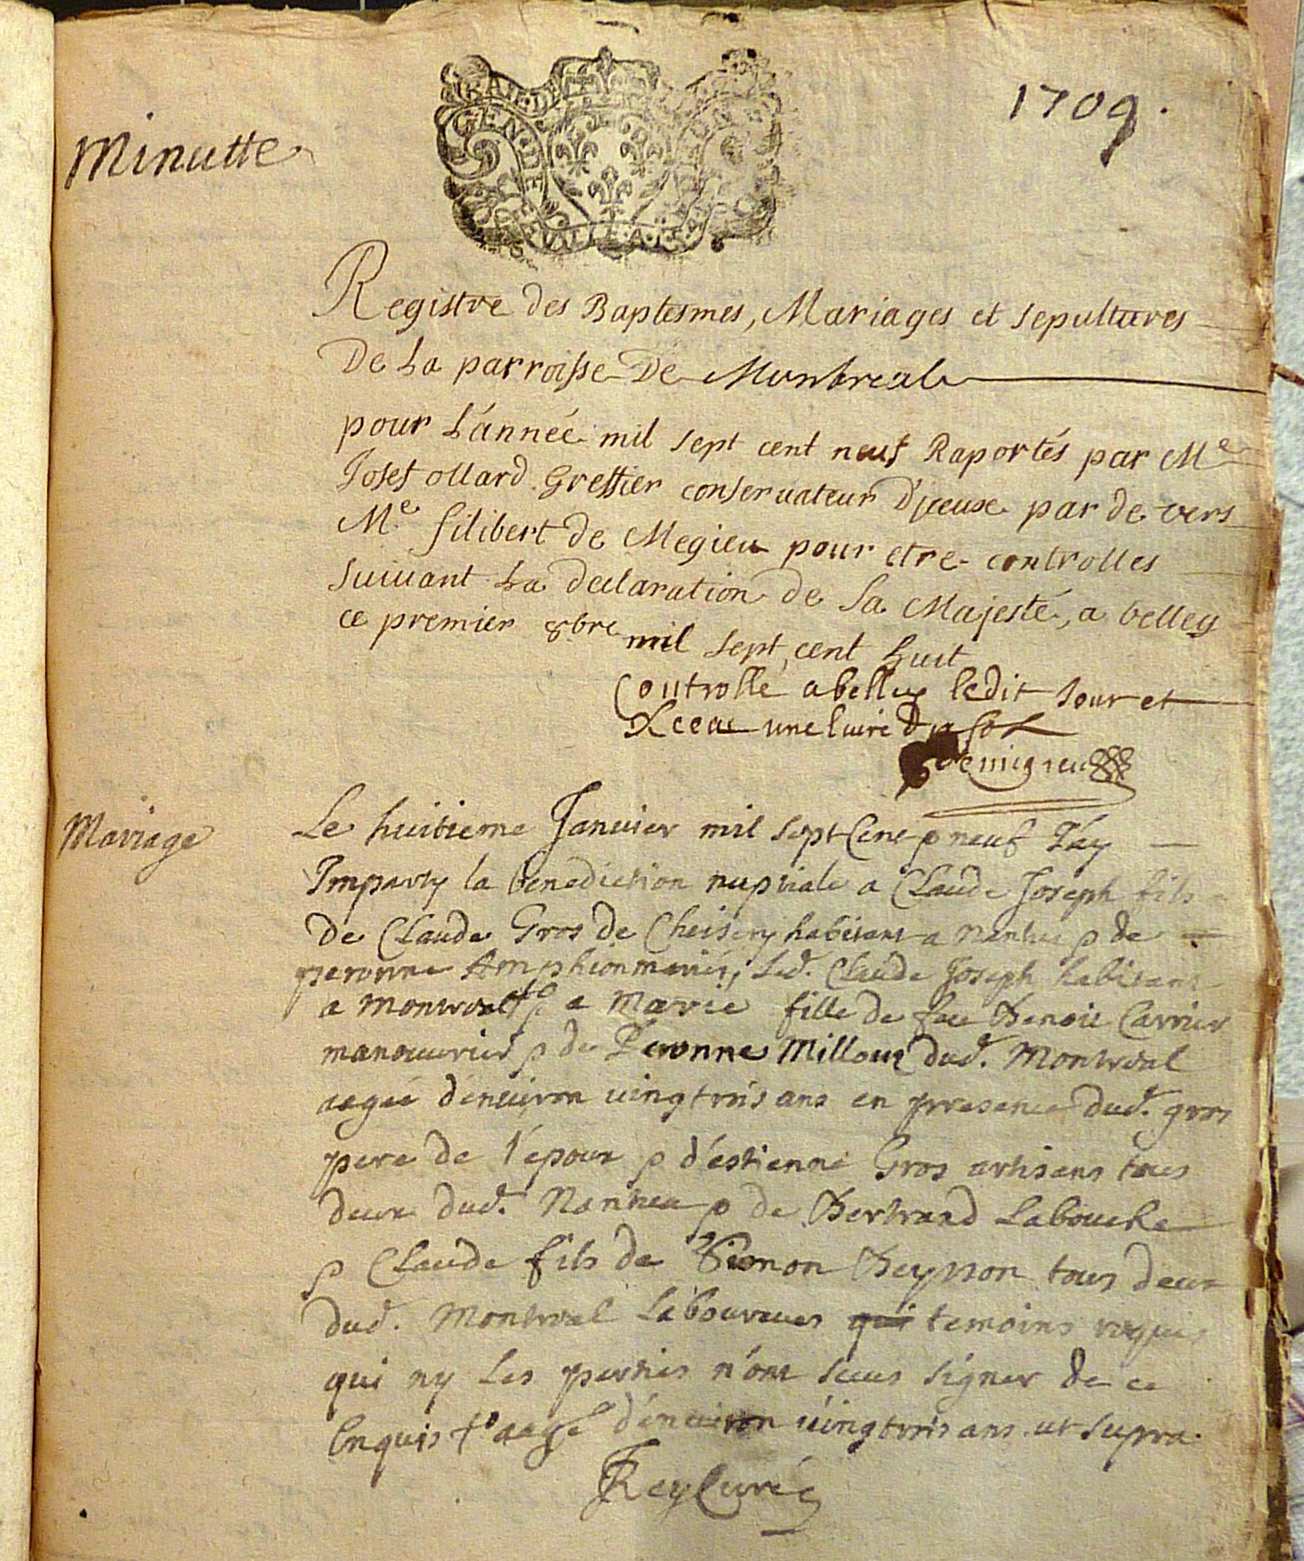 1709.
Minutte
GEN.DE
Registre des Baptesmes, Mariages et sepultures
De La parroisse De Montreal
pour L'année mil sept cent neuf Raportés par Me
Josef ollard Greffier conservateur D'jceux par de vers
Me filibert de Megieu pour etre controlles
suivant La declaration de Sa Majesté, a belley
ce premier 8bre mil sept cent huit
Controllé a belley ledit Jour et
Receu une livre
demigieu
Mariage
Le huitieme Janvier mil sept Cent neuf J'ay
Imparty la benediction nuptiale a Claude Joseph fils
De Claude Gros de Cheisery habitant a Nantua & de
peronne Amphion mariés, Led. Claude Joseph habitant
a Montreal & a Marie fille de feu Benoit Carrier
manouvrier & de Peronne Milloux dud. Montreal
aagée d'environ vingt trois ans en presence dud. gros
pere de l'epoux & d'estienne Gros artisans tous
deux dud. Nantua & de Bertrand Labouche
& Claude fils de Simon Beysson tous deux
dud. Montreal Laboureurs qui temoins requis
qui ny Les parties n'ont sceus signer de ce
Enquis aagé d'environ vingt trois ans ut supra.
Rey Curé